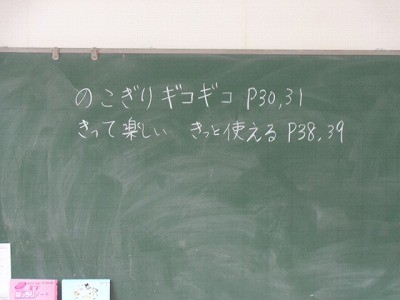 のこぎりギコギコ P30,31
きって楽しい きっと使える P38,39